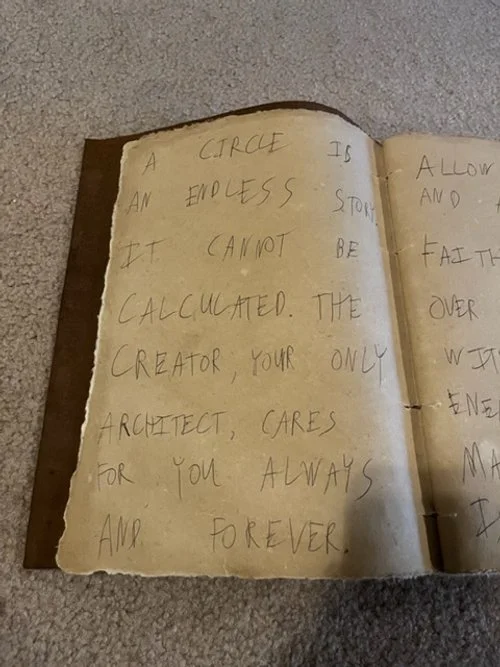 A CIRCLE IS
AN ENDLESS STORY.
IT CANNOT BE
CALCULATED. THE
CREATOR, YOUR ONLY
ARCHITECT, CARES
FOR YOU ALWAYS
AND FOREVER.
ALLOW
AND
FAITH
OVER